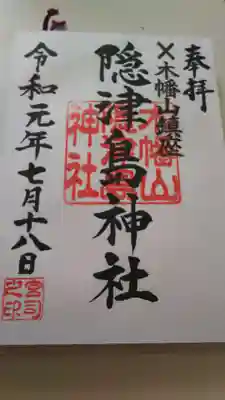 奉拝
木幡山鎮座
隠津島神社
木幡山
隠津島
神社
令和元年七月十八日
宮司
之印